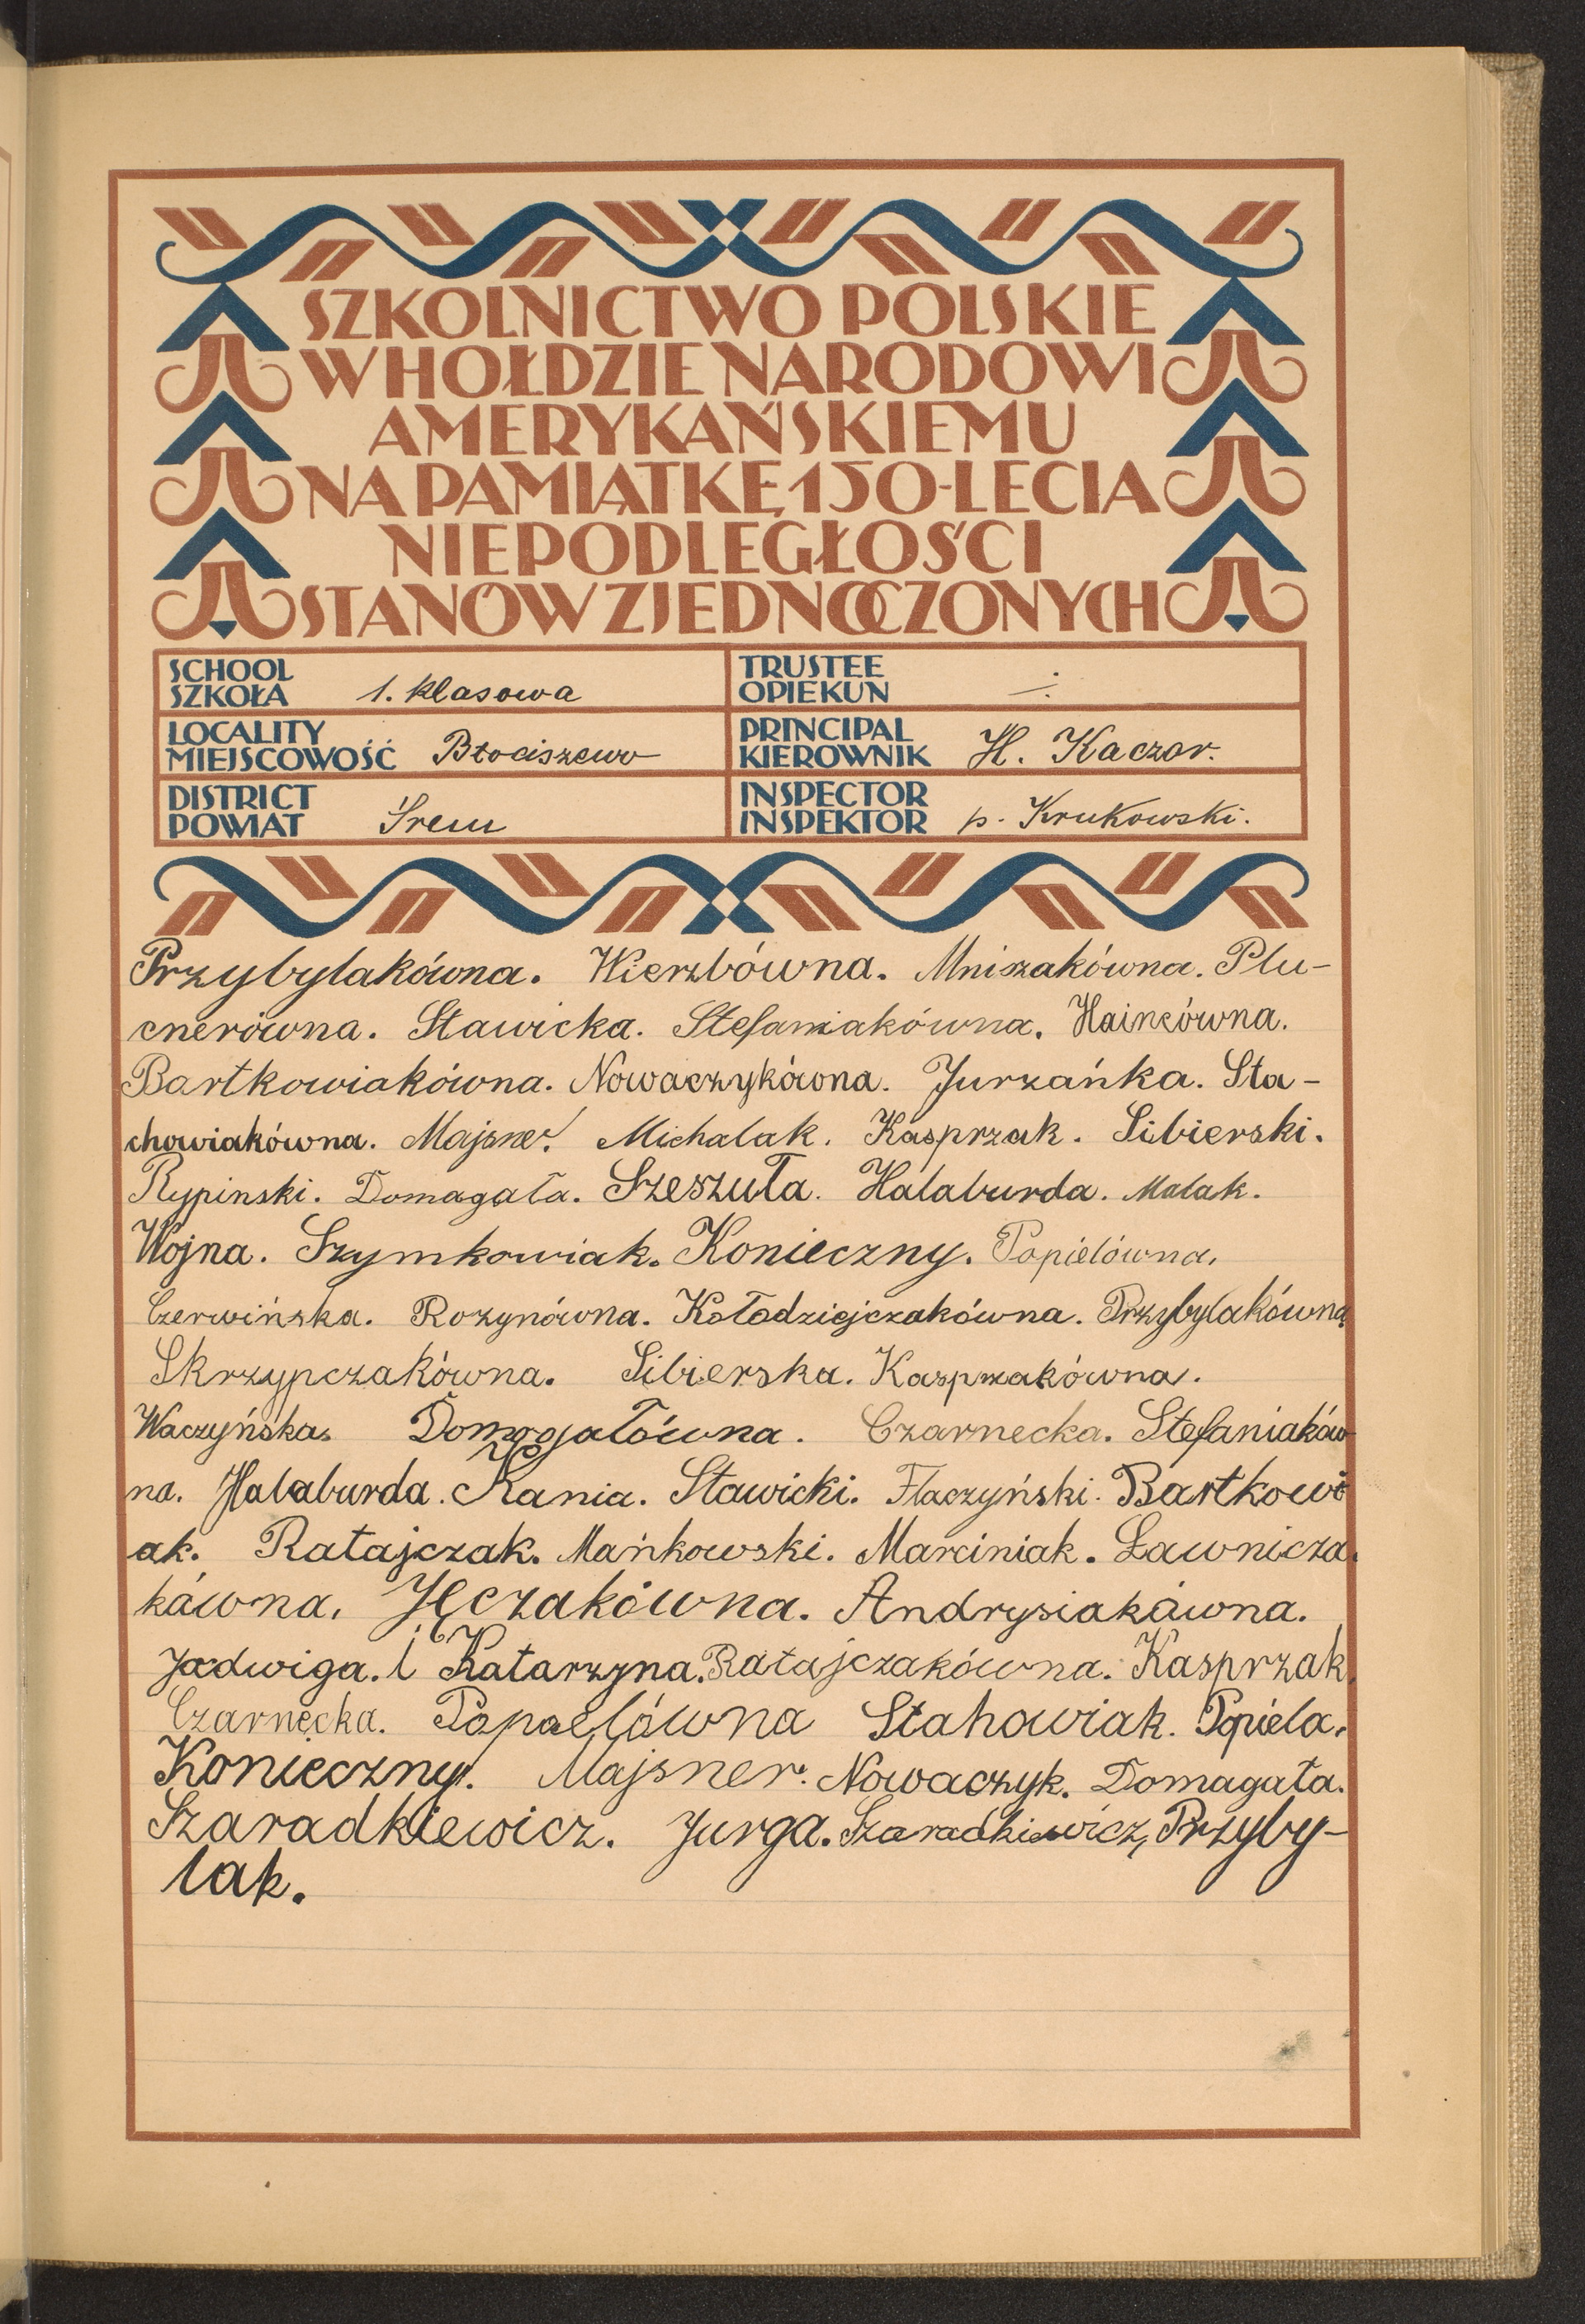 SZKOLNICTWO POLSKIE
W HOŁDZIE NARODOWI
AMERYKAŃSKIEMU
NA PAMIĄTKĘ 150-LECIA
NIEPODLEGŁOŚCI
STANÓW ZJEDNOCZONYCH
SCHOOL
SZKOŁA 1. klasowa
TRUSTEE
OPIEKUN
LOCALITY
MIEJSCOWOŚĆ Błociszewo
PRINCIPAL
KIEROWNIK H. Kaczor.
DISTRICT
POWIAT Śrem
INSPECTOR
INSPEKTOR p. Krukowski.
Przybylakówna. Wierzbówna. Mniszakówna. Plu-
cnerówna. Stawicka. Stefaniakówna. Haincówna.
Bartkowiakówna. Nowaczykówna. Jurzańka. Sta-
chowiakówna. Majsner. Michalak. Kasprzak. Sibierski.
Rypinski. Domagała. Szeszuła. Halaburda. Malak.
Wojna. Szymkowiak. Konieczny. Popielówna.
Czerwińska. Rozynówna. Kołodziejczakówna. Przybylakówna.
Skrzypczakówna. Sibierska. Kasprzakówna.
Waczyńska. Domogałówna. Czarnecka. Stefaniaków-
na. Halaburda. Kania. Stawicki. Flaczyński. Bartkowi
ak. Ratajczak. Mańkowski. Marciniak. Ławnicza.
kówna. Jęczakówna. Andrysiakówna.
Jadwiga. i Katarzyna. Ratajczakówna. Kasprzak.
Czarnęcka. Popaelówna Stahowiak. Popiela.
Konieczny. Majsner. Nowaczyk. Domagała.
Szaradkiewicz. Jurga. Szaradkiewicz, Przyby-
lak.